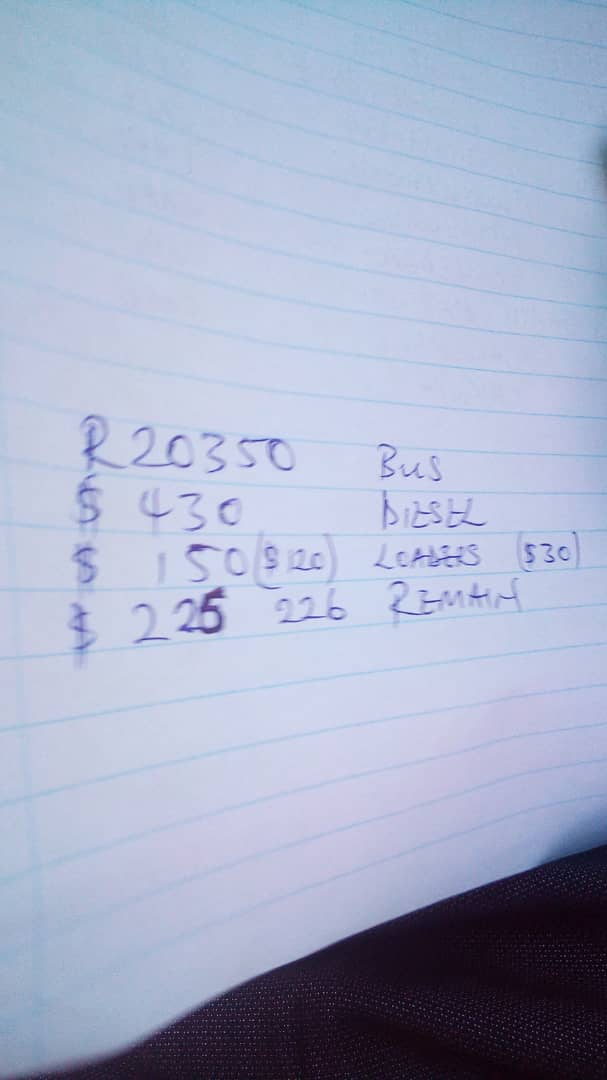 R20350 Bus
$ 430 DIESEL
$ 150 ($120) LOADERS ($30)
$ 225 226 REMAIN